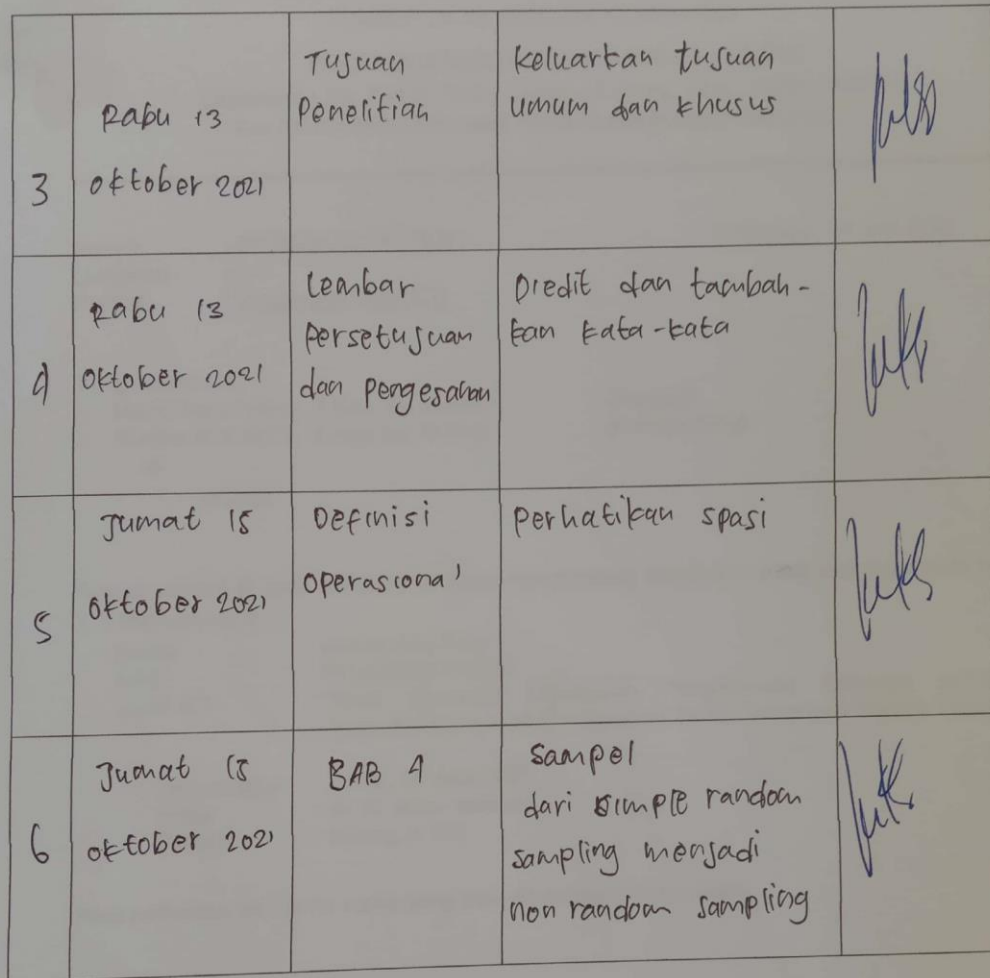 3
Rabu 13
Oktober 2021
Tujuan
Penelitian
Keluarkan tujuan
umum dan khusus
4
Rabu 13
Oktober 2021
Lembar
persetujuan
dan pengesahan
Diedit dan tambah-
kan kata-kata
5
Jumat 15
Oktober 2021
Definisi
Operasional
Perhatikan spasi
6
Jumat 15
Oktober 2021
BAB 4
Sampel
dari simple random
sampling menjadi
non random sampling